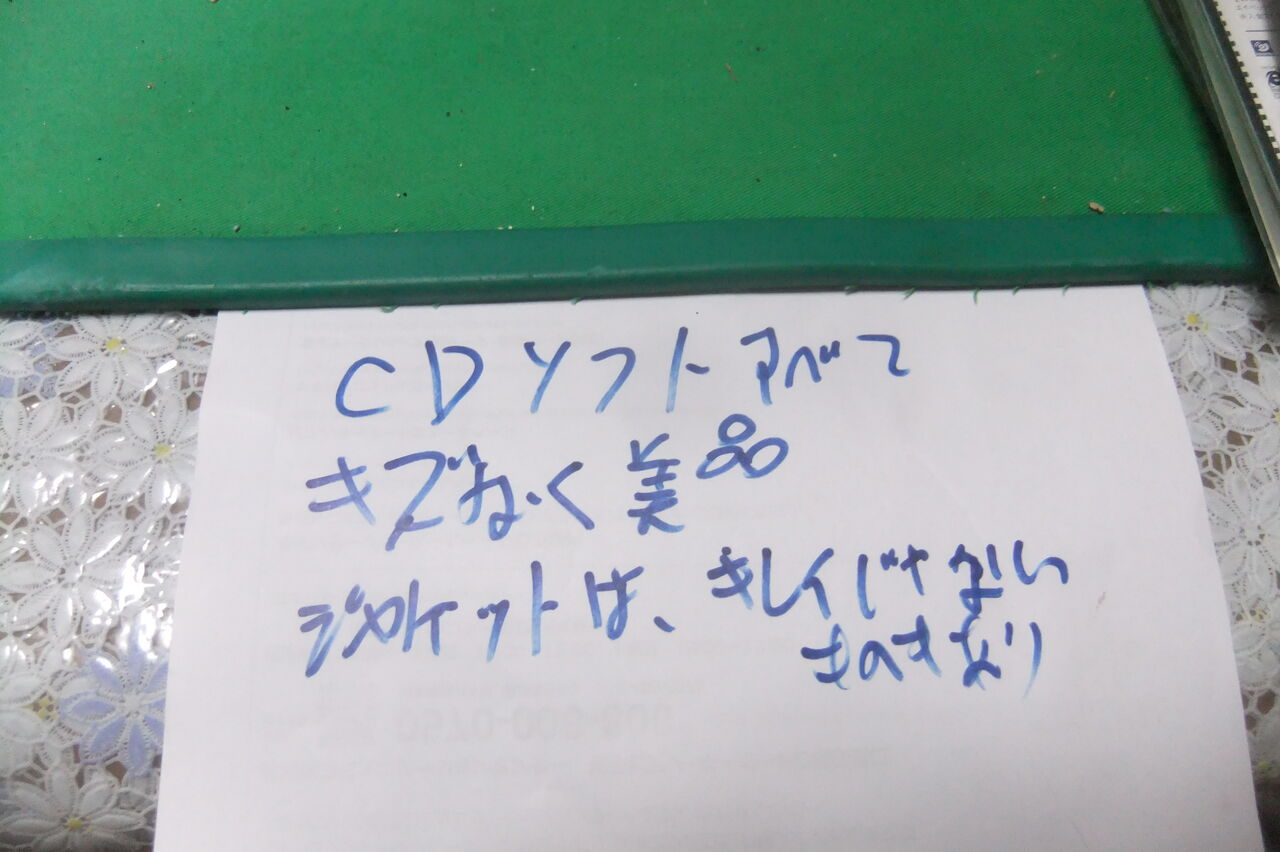 CDソフトすべて
キズなく美品
ジャケットは、キレイじゃない
ものもあり